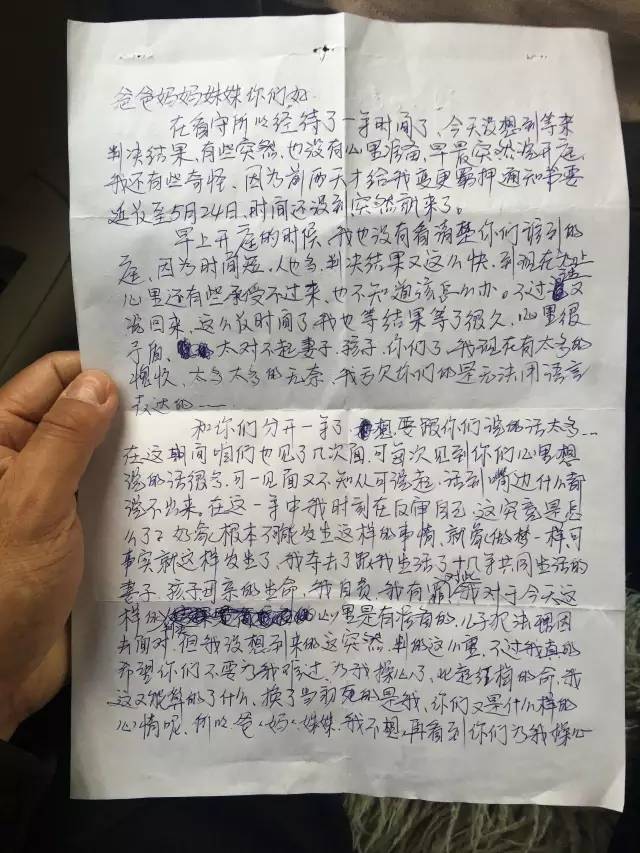 爸爸妈妈妹妹你们好.
在看守所以经待了一年时间了、今天没想到等来
判决结果、有些突然、也没有心里准备、早晨突然说开庭、
我还有些奇怪、因为前两天才给我变更羁押通知书要
延长至5月24日、时间还没到突然就来了。
早上开庭的时候、我也没有看清楚你们谁到的
庭、因为时间短、人也多、判决结果又这么快、到现在
心里还有些承受不过来、也不知道该怎么办。不过又
说回来、这么长时间了、我也等结果等了很久、心里很
矛盾、太对不起妻子、孩子、你们了、我现在有太多的
愧疚、太多太多的无奈、我亏欠你们的是无法用语言
表达的……
和你们分开一年了、想要跟你们说的话太多…
在这期间咱们也见了几次面、可每次见到你们心里想
说的话很多、可一见面又不知从何说起、话到嘴边什么都
说不出来。在这一年中我时刻在反省自己、这究竟是怎
么了?好象根本不可能发生这样的事情、就象做梦一样、可
事实就这样发生了、我夺去了跟我生活了十几年共同生活的
妻子、孩子母亲的生命、我自责、我有罪、我对于今天这
样的心里是有准备的、儿子犯法理因
去面对、但我没想到来的这突然、判的这么重、不过我真的
希望你们不要为我难过、为我操心了、比起红梅的命、我
这又能算的了什么、换了当初死的是我、你们又是什么样的
心情呢、所以爸、妈、妹妹、我不想再看到你们为我操心